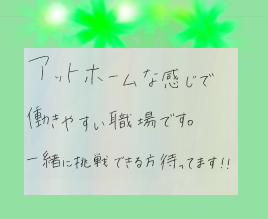 アットホームな感じで
働きやすい職場です。
一緒に挑戦できる方待ってます!!